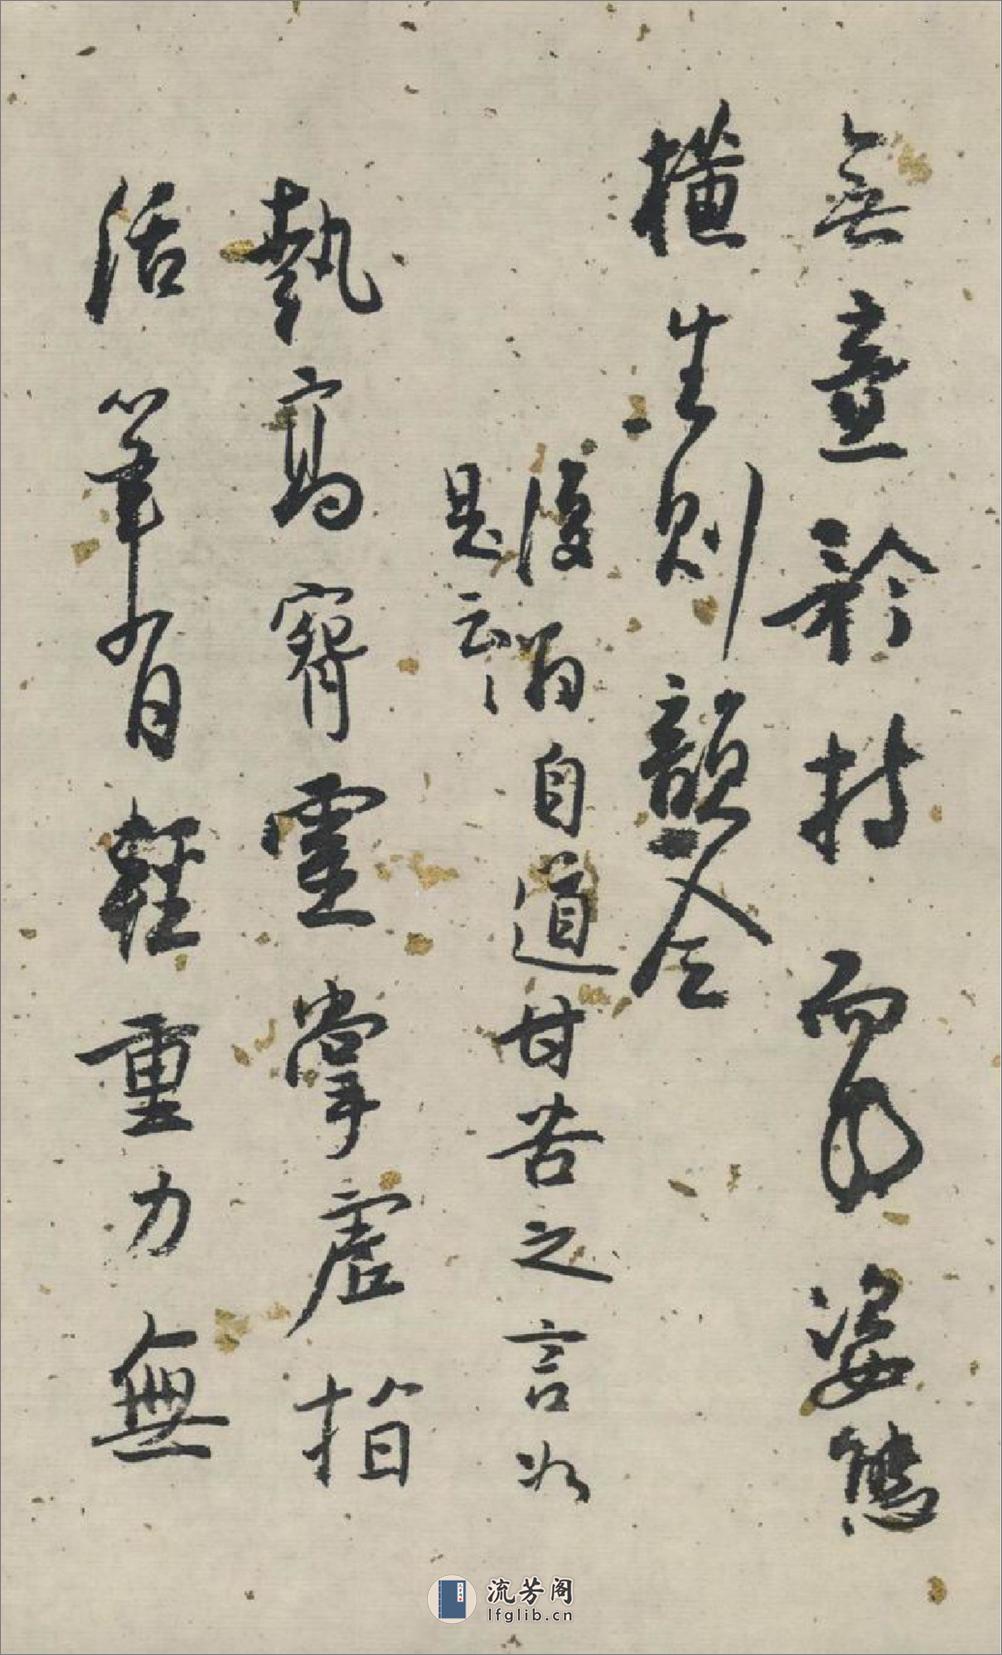 無意矜持而姿態
橫生則韻全
自道甘苦之言如
是云
執靈掌虛指
活筆有輕重力無
流芳阁
lfglib.cn